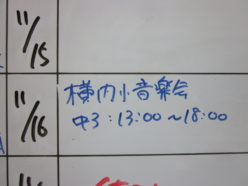 11/15
11/16
横内小音楽会
中3:13:00~18:00